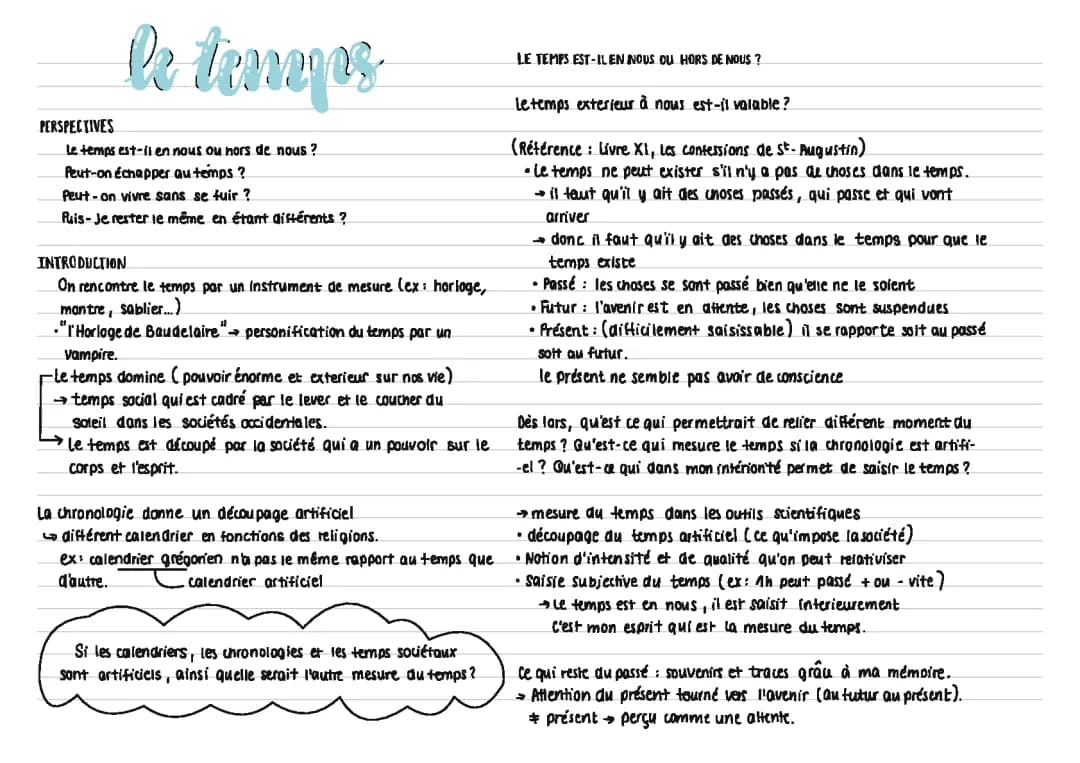 le temps
PERSPECTIVES
Le temps est-il en nous ou hors de nous ?
Peut-on échapper au temps ?
Peut-on vivre sans se fuir ?
Puis-Je rester le même en étant différents ?
INTRODUCTION
On rencontre le temps par un instrument de mesure (ex : horloge,
montre, sablier...)
•"l'Horloge de Baudelaire" → personification du temps par un
vampire.
Le temps domine ( pouvoir énorme et exterieur sur nos vie)
→ temps social qui est cadré par le lever et le coucher du
soleil dans les sociétés occidentales.
→ Le temps est découpé par la société qui a un pouvoir sur le
corps et l'esprit.
La chronologie donne un découpage artificiel
↳ différent calendrier en fonctions des religions.
ex : calendrier grégorien n'a pas le même rapport au temps que
d'autre. calendrier artificiel
Si les calendriers, les chronologies et les temps sociétaux
sont artificiels, ainsi quelle serait l'autre mesure du temps ?
LE TEMPS EST-IL EN NOUS OU HORS DE NOUS ?
Le temps exterieur à nous est-il valable ?
(Référence : Livre XI, Les confessions de St-Augustin)
• Le temps ne peut exister s'il n'y a pas de choses dans le temps.
→ il faut qu'il y ait des choses passés, qui passe et qui vont
arriver
→ donc il faut qu'il y ait des choses dans le temps pour que le
temps existe
• Passé : les choses se sont passé bien qu'elle ne le soient
• Futur : l'avenir est en attente, les choses sont suspendues
• Présent : (difficilement saisissable) il se rapporte soit au passé
soit au futur.
le présent ne semble pas avoir de conscience
Dès lors, qu'est ce qui permettrait de relier différent moment du
temps ? Qu'est-ce qui mesure le temps si la chronologie est artifi-
-el ? Qu'est-ce qui dans mon intériorité permet de saisir le temps ?
→ mesure du temps dans les outils scientifiques
• découpage du temps artificiel (ce qu'impose la société)
• Notion d'intensité et de qualité qu'on peut relativiser
• Saisie subjective du temps (ex : 1h peut passé + ou - vite)
→ Le temps est en nous, il est saisit interieurement
C'est mon esprit qui est la mesure du temps.
Ce qui reste du passé : souvenirs et traces grâce à ma mémoire.
→ Attention du présent tourné vers l'avenir (au futur au présent).
* présent → perçu comme une attente.